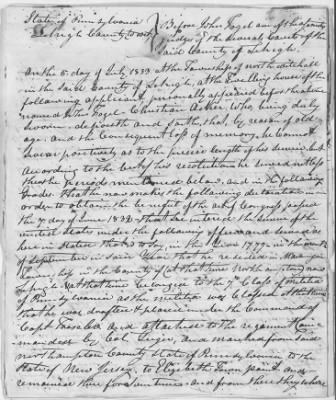 State of Pennsylvania
Lehigh County to wit
Before John Fogel one of the
Judges of the several Courts of the
said County of Lehigh.
On the 6 day of July 1833 at the Township of north whitehall
in the said County of Lehigh, at the Dwelling house of the
following applicant, personally appeared before the above
named John Fogel Christian Acker, who being duly
sworn deposeth and saith, that, by reason of old
age and the Consequent loss of memory, he Cannot
swear positively as to the precise length of his service, but
according to the best of his recollection he served not less
than the periods mentioned below, and in the following
Grades. That he now makes the following declaration in
order to obtain the benefit of the act of Congress, passed
the 7 day of June 1832. That he entered the service of the
united States under the following officers and served as
herein stated, that is to say, in the year 1779 in the month
of September in said year that he resided in
Township in the County (at that time Northampton) now
Lehigh. That he belonged to the 7 Class of militia
of Pennsylvania as the militia was Classed at that time
that he was drafted & placed under the Command of
Capt and attached to the regiment Com-
manded by Col. and marched from said
northampton County State of Pennsylvania to the
State of New Jersey, to Elizabeth Town point and
remained there for sometime and from there they where